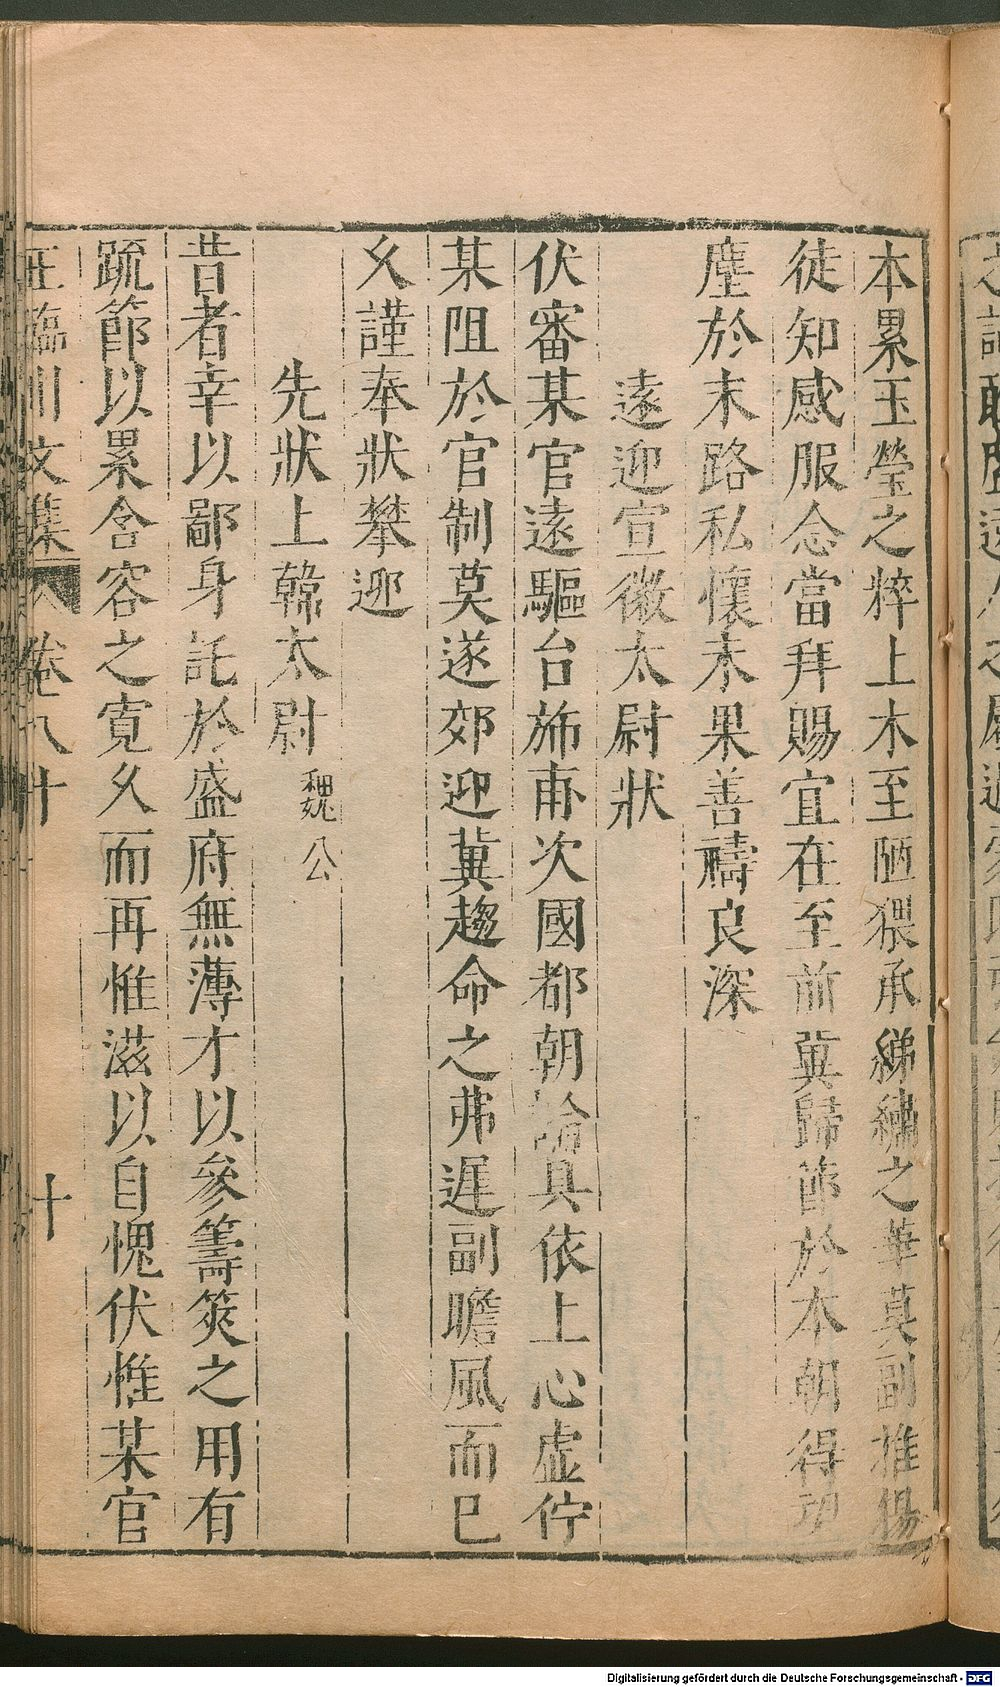 本累玉瑩之粹上木至陋猥承綈繡之華莫副推揚
徒知感服念當拜賜宜在至前冀歸節於本朝得望
塵於末路私懷未果善禱良深
遠迎宣徽太尉狀
伏審某官遠驅台斾甫次國都朝論具依上心虛佇
某阻於官制莫遂郊迎冀趨命之弗遲副瞻風而已
久謹奉狀攀迎
先狀上韓太尉 魏公
昔者幸以鄙身託於盛府無薄才以參籌筴之用有
䟽節以累含容之寬久而再惟滋以自愧伏惟某官
王臨川文集 卷八十 十
Digitalisierung gefördert durch die Deutsche Forschungsgemeinschaft - DFG